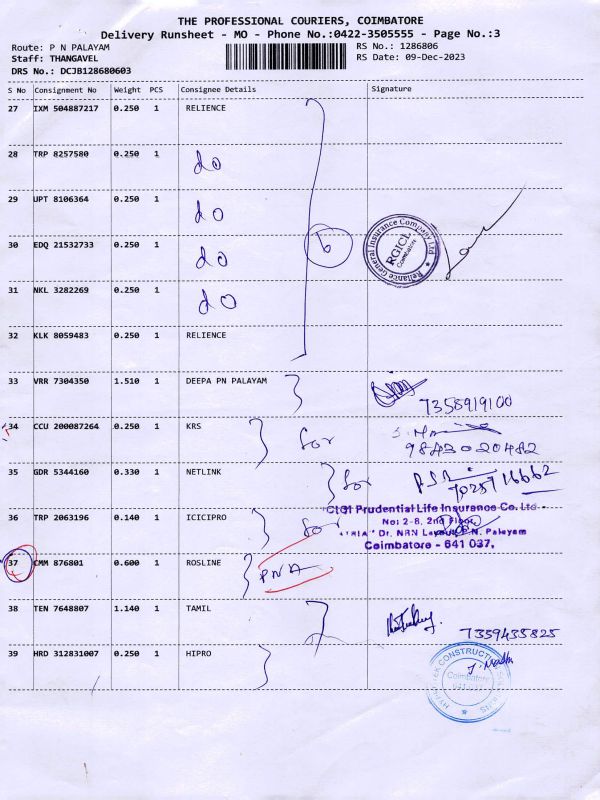 THE PROFESSIONAL COURIERS, COIMBATORE
Delivery Runsheet - MO - Phone No.:0422-3505555 - Page No.:3
Route: P N PALAYAM
RS No.: 1286806
Staff: THANGAVEL
RS Date: 09-Dec-2023
DRS No.: DCJB128680603
S No Consignment No Weight PCS Consignee Details Signature
27 IXM 504887217 0.250 1 RELIENCE
28 TRP 8257580 0.250 1 do
29 UPT 8106364 0.250 1 do
30 EDQ 21532733 0.250 1 do
6
Reliance General Insurance Company Ltd
RGICL
Coimbatore
31 NKL 3282269 0.250 1 do
32 KLK 8059483 0.250 1 RELIENCE
33 VRR 7304350 1.510 1 DEEPA PN PALAYAM
7358919100
34 CCU 200087264 0.250 1 KRS for
9843020482
35 GDR 5344160 0.330 1 NETLINK for
70257 16662
36 TRP 2063196 0.140 1 ICICIPRO for
ICICI Prudential Life Insurance Co. Ltd
No: 2-8, 2nd Floor,
Dr. NRN Layout, P.N. Palayam
Coimbatore - 641 037.
37 CMM 876801 0.600 1 ROSLINE PNA
38 TEN 7648807 1.140 1 TAMIL
7359435825
39 HRD 312831007 0.250 1 HIPRO
Coimbatore